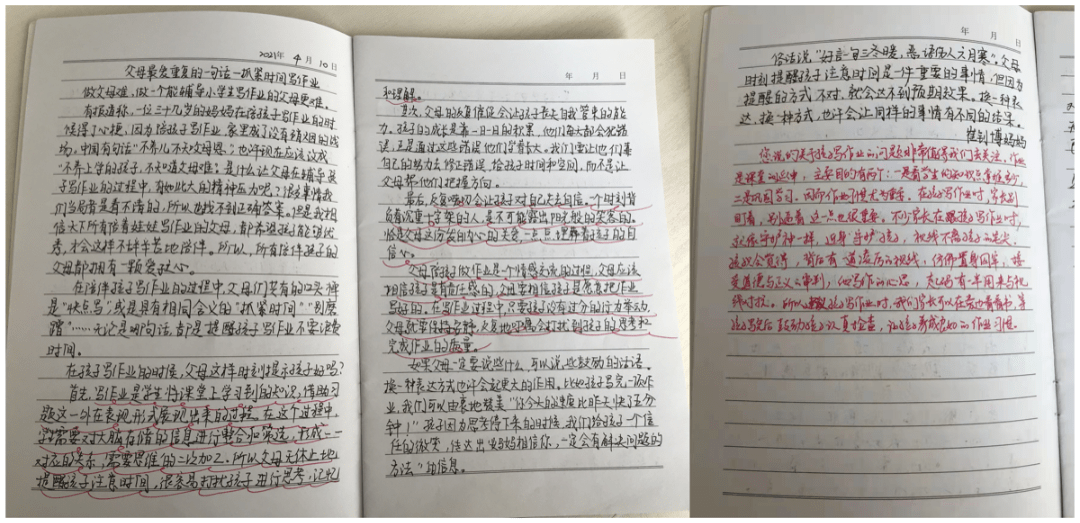 2021年 4月 10日
父母最爱重复的一句话—抓紧时间写作业
做父母难,做一个能辅导小学生写作业的父母更难。
有报道称,一位三十几岁的妈妈在陪孩子写作业的时
候得了心梗,因为陪孩子写作业,家里成了没有硝烟的战
场,中国有句话“不养儿不知父母恩”,也许现在应该说成
“不养上学的孩子,不知道父母难”。是什么让父母在辅导孩
子写作业的过程中,有如此大的精神压力呢?很多事情我
们当局者是看不清的,所以也找不到正确答案。但是我相
信天下所有陪着娃娃写作业的父母,都希望孩子能够优
秀,才会这样不辞辛苦地陪伴。所以,所有陪伴孩子的
父母都拥有一颗爱孩子心。
在陪伴孩子写作业的过程中,父母们共有的口头禅
是“快点写”,或是具有相同含义的“抓紧时间”“别磨
蹭”……无论是哪句话,都是提醒孩子写作业不要浪费
时间。
在孩子写作业的时候,父母这样时刻提示孩子好吗?
首先,写作业是学生将课堂上学习到的知识,借助习
题这一外在表现形式展现出来的过程。在这个过程中,
孩子需要对大脑存储的信息进行整合和筛选,形成一一
对应的关系,需要思维的二次加工。所以父母无休止地
提醒孩子注意时间,很容易打扰孩子进行思考、记忆
年 月 日
和理解。
其次,父母的反复催促会让孩子丧失自我管束的能
力。孩子的成长是靠一日一日的积累,他们每天都会犯错
误,正是通过这些错误他们学着长大。我们要让他们靠
自己的努力去修正错误,给孩子时间和空间,而不是让
父母帮他们把握方向。
最后,反复叮嘱会让孩子对自己失去自信。一个时刻背
负着沉重十字架的人,是不可能露出阳光般的笑容的。
恰是父母这份发自内心的关爱,一点点埋葬着孩子的自
信心。
父母陪孩子做作业是个情感交流的过程,父母应该
相信孩子是有责任感的,父母要相信孩子是愿意把作业
写好的。在写作业过程中,只要孩子没有过分的行为举动,
父母就要保持安静,反复地叮嘱会打扰到孩子的思考和
完成作业的质量。
如果父母一定要说些什么,可以说些鼓励的话语。
换一种表达方式也许会起更大的作用。比如孩子写完一项作
业,我们可以由衷地赞美“你今天的速度比昨天快了五分
钟!”孩子因为思考停下来的时候,我们给孩子一个信
任的微笑,传达出“妈妈相信你,一定会有解决问题的
方法”的信息。
年 月 日
俗话说“好言一句三冬暖,恶语伤人六月寒”。父母
时刻提醒孩子注意时间是一件重要的事情,但因为
提醒的方式不对,就会达不到预期效果。换一种表
达,换一种方式,也许会让同样的事情有不同的结果。
博妈妈
您说的关于孩子写作业的问题非常值得我们去关注,作业
是课堂的延伸,主要目的有两个:一是看学生的知识点掌握多少,
二是巩固学习。因而作业习惯尤为重要。在孩子写作业时,家长别
盯着,别追着,这一点也很重要。不少家长在跟孩子写作业时,
就像守护神一样,近身守护孩子,视线不离孩子的笔尖。
孩子会觉得,背后有一道凌厉的视线,仿佛置身囚牢,接
受道德与正义的审判,他写作的心思,起码有一半用来与视
线对抗。所以孩子写作业时,我们家长可以在旁边看看书,等
孩子写完后帮助孩子认真检查,让孩子养成良好的作业习惯。